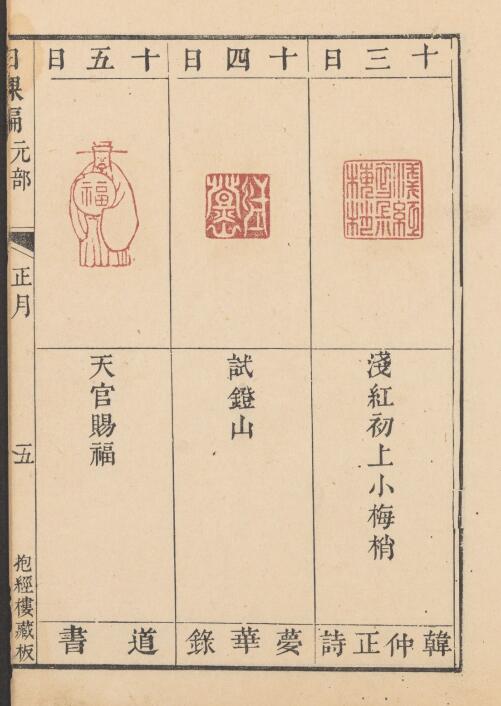 十三日
淺紅初上小梅梢
韓仲正詩
十四日
試鐙山
夢華錄
十五日
福
天官賜福
道書
日課編 元部
正月
五
抱經樓藏板